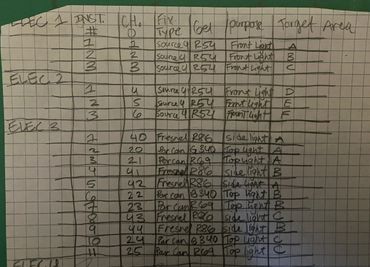 ELEC 1 INST. # CH. () Fix Type Gel purpose Target Area
1 1 Source4 R54 Front light A
2 2 Source4 R54 Front light B
3 3 Source4 R54 Front light C
ELEC 2
1 4 Source4 R54 Front light D
2 5 Source4 R54 Front light E
3 6 Source4 R54 Front light F
ELEC 3
1 40 Fresnel R86 side light A
2 20 Par can G340 Top light A
3 21 Par can R69 Top light A
4 41 Fresnel R86 side light B
5 42 Fresnel R86 side light A
6 22 Par can G340 Top light B
7 23 Par can R69 Top light B
8 43 Fresnel R86 side light C
9 44 Fresnel R86 side light B
10 24 Par can G340 Top light C
11 25 Par can R69 Top light C